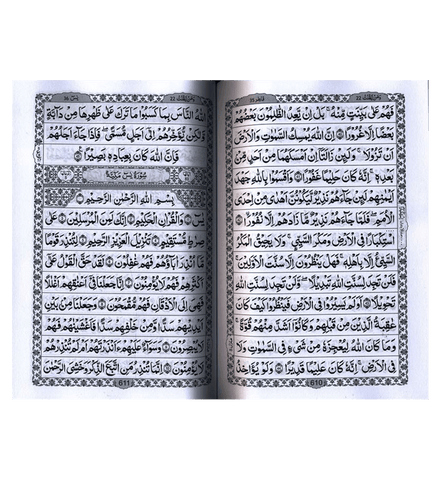 ومن يقنت 22
فاطر 35
فَهُمْ عَلٰى بَيِّنَتٍ مِّنْهُ ۚ بَلْ اِنْ يَّعِدُ الظّٰلِمُوْنَ بَعْضُهُمْ
بَعْضًا اِلَّا غُرُوْرًا ۝ اِنَّ اللّٰهَ يُمْسِكُ السَّمٰوٰتِ وَالْاَرْضَ
اَنْ تَزُوْلَا ۚ وَلَئِنْ زَالَتَاۤ اِنْ اَمْسَكَهُمَا مِنْ اَحَدٍ مِّنْۢ
بَعْدِهٖ ؕ اِنَّهٗ كَانَ حَلِيْمًا غَفُوْرًا ۝ وَاَقْسَمُوْا بِاللّٰهِ جَهْدَ
اَيْمَانِهِمْ لَئِنْ جَآءَهُمْ نَذِيْرٌ لَّيَكُوْنُنَّ اَهْدٰى مِنْ اِحْدَى
الْاُمَمِ ۚ فَلَمَّا جَآءَهُمْ نَذِيْرٌ مَّا زَادَهُمْ اِلَّا نُفُوْرًا ۝
اسْتِكْبَارًا فِى الْاَرْضِ وَمَكْرَ السَّيِّئِ ؕ وَلَا يَحِيْقُ الْمَكْرُ
السَّيِّئُ اِلَّا بِاَهْلِهٖ ؕ فَهَلْ يَنْظُرُوْنَ اِلَّا سُنَّتَ الْاَوَّلِيْنَ ۚ
فَلَنْ تَجِدَ لِسُنَّتِ اللّٰهِ تَبْدِيْلًا ۚ وَلَنْ تَجِدَ لِسُنَّتِ اللّٰهِ
تَحْوِيْلًا ۝ اَوَلَمْ يَسِيْرُوْا فِى الْاَرْضِ فَيَنْظُرُوْا كَيْفَ كَانَ
عَاقِبَةُ الَّذِيْنَ مِنْ قَبْلِهِمْ وَكَانُوْۤا اَشَدَّ مِنْهُمْ قُوَّةً ؕ
وَمَا كَانَ اللّٰهُ لِيُعْجِزَهٗ مِنْ شَىْءٍ فِى السَّمٰوٰتِ وَلَا
فِى الْاَرْضِ ؕ اِنَّهٗ كَانَ عَلِيْمًا قَدِيْرًا ۝ وَلَوْ يُؤَاخِذُ
610
ومن يقنت 22
يٰس 36
اللّٰهُ النَّاسَ بِمَا كَسَبُوْا مَا تَرَكَ عَلٰى ظَهْرِهَا مِنْ دَآبَّةٍ
وَّلٰكِنْ يُّؤَخِّرُهُمْ اِلٰٓى اَجَلٍ مُّسَمًّى ۚ فَاِذَا جَآءَ اَجَلُهُمْ
فَاِنَّ اللّٰهَ كَانَ بِعِبَادِهٖ بَصِيْرًا ۝
سُوْرَةُ يٰسٓ مَكِّيَّةٌ
بِسْمِ اللّٰهِ الرَّحْمٰنِ الرَّحِيْمِ
يٰسٓ ۝ وَالْقُرْاٰنِ الْحَكِيْمِ ۝ اِنَّكَ لَمِنَ الْمُرْسَلِيْنَ ۝ عَلٰى
صِرَاطٍ مُّسْتَقِيْمٍ ۝ تَنْزِيْلَ الْعَزِيْزِ الرَّحِيْمِ ۝ لِتُنْذِرَ قَوْمًا
مَّاۤ اُنْذِرَ اٰبَآؤُهُمْ فَهُمْ غٰفِلُوْنَ ۝ لَقَدْ حَقَّ الْقَوْلُ عَلٰٓى
اَكْثَرِهِمْ فَهُمْ لَا يُؤْمِنُوْنَ ۝ اِنَّا جَعَلْنَا فِىْۤ اَعْنَاقِهِمْ اَغْلٰلًا
فَهِىَ اِلَى الْاَذْقَانِ فَهُمْ مُّقْمَحُوْنَ ۝ وَجَعَلْنَا مِنْۢ بَيْنِ
اَيْدِيْهِمْ سَدًّا وَّمِنْ خَلْفِهِمْ سَدًّا فَاَغْشَيْنٰهُمْ فَهُمْ
لَا يُبْصِرُوْنَ ۝ وَسَوَآءٌ عَلَيْهِمْ ءَاَنْذَرْتَهُمْ اَمْ لَمْ تُنْذِرْهُمْ
لَا يُؤْمِنُوْنَ ۝ اِنَّمَا تُنْذِرُ مَنِ اتَّبَعَ الذِّكْرَ وَخَشِىَ الرَّحْمٰنَ
611